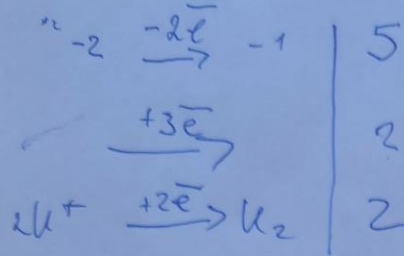 -2 -2e̅ → -1 | 5
+3e̅ → | 2
2H⁺ +2e̅ → H₂ | 2